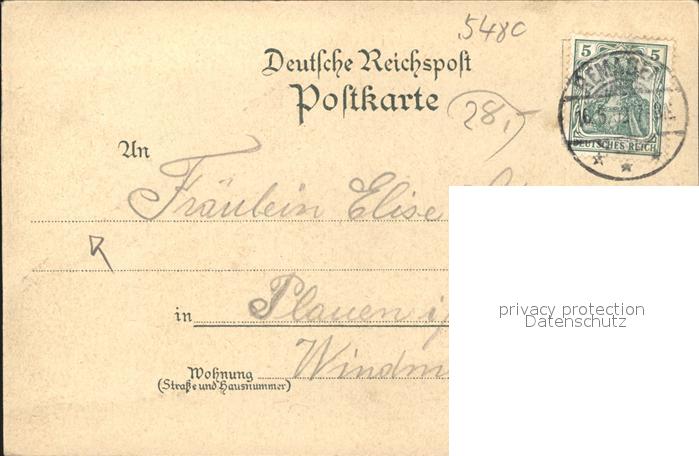 5480
Deutsche Reichspost
Postkarte
28,-
5 5
DEUTSCHES REICH
An
Fräulein Elise
in Plauen i/
Wohnung
(Straße und Hausnummer)
Windm
privacy protection
Datenschutz